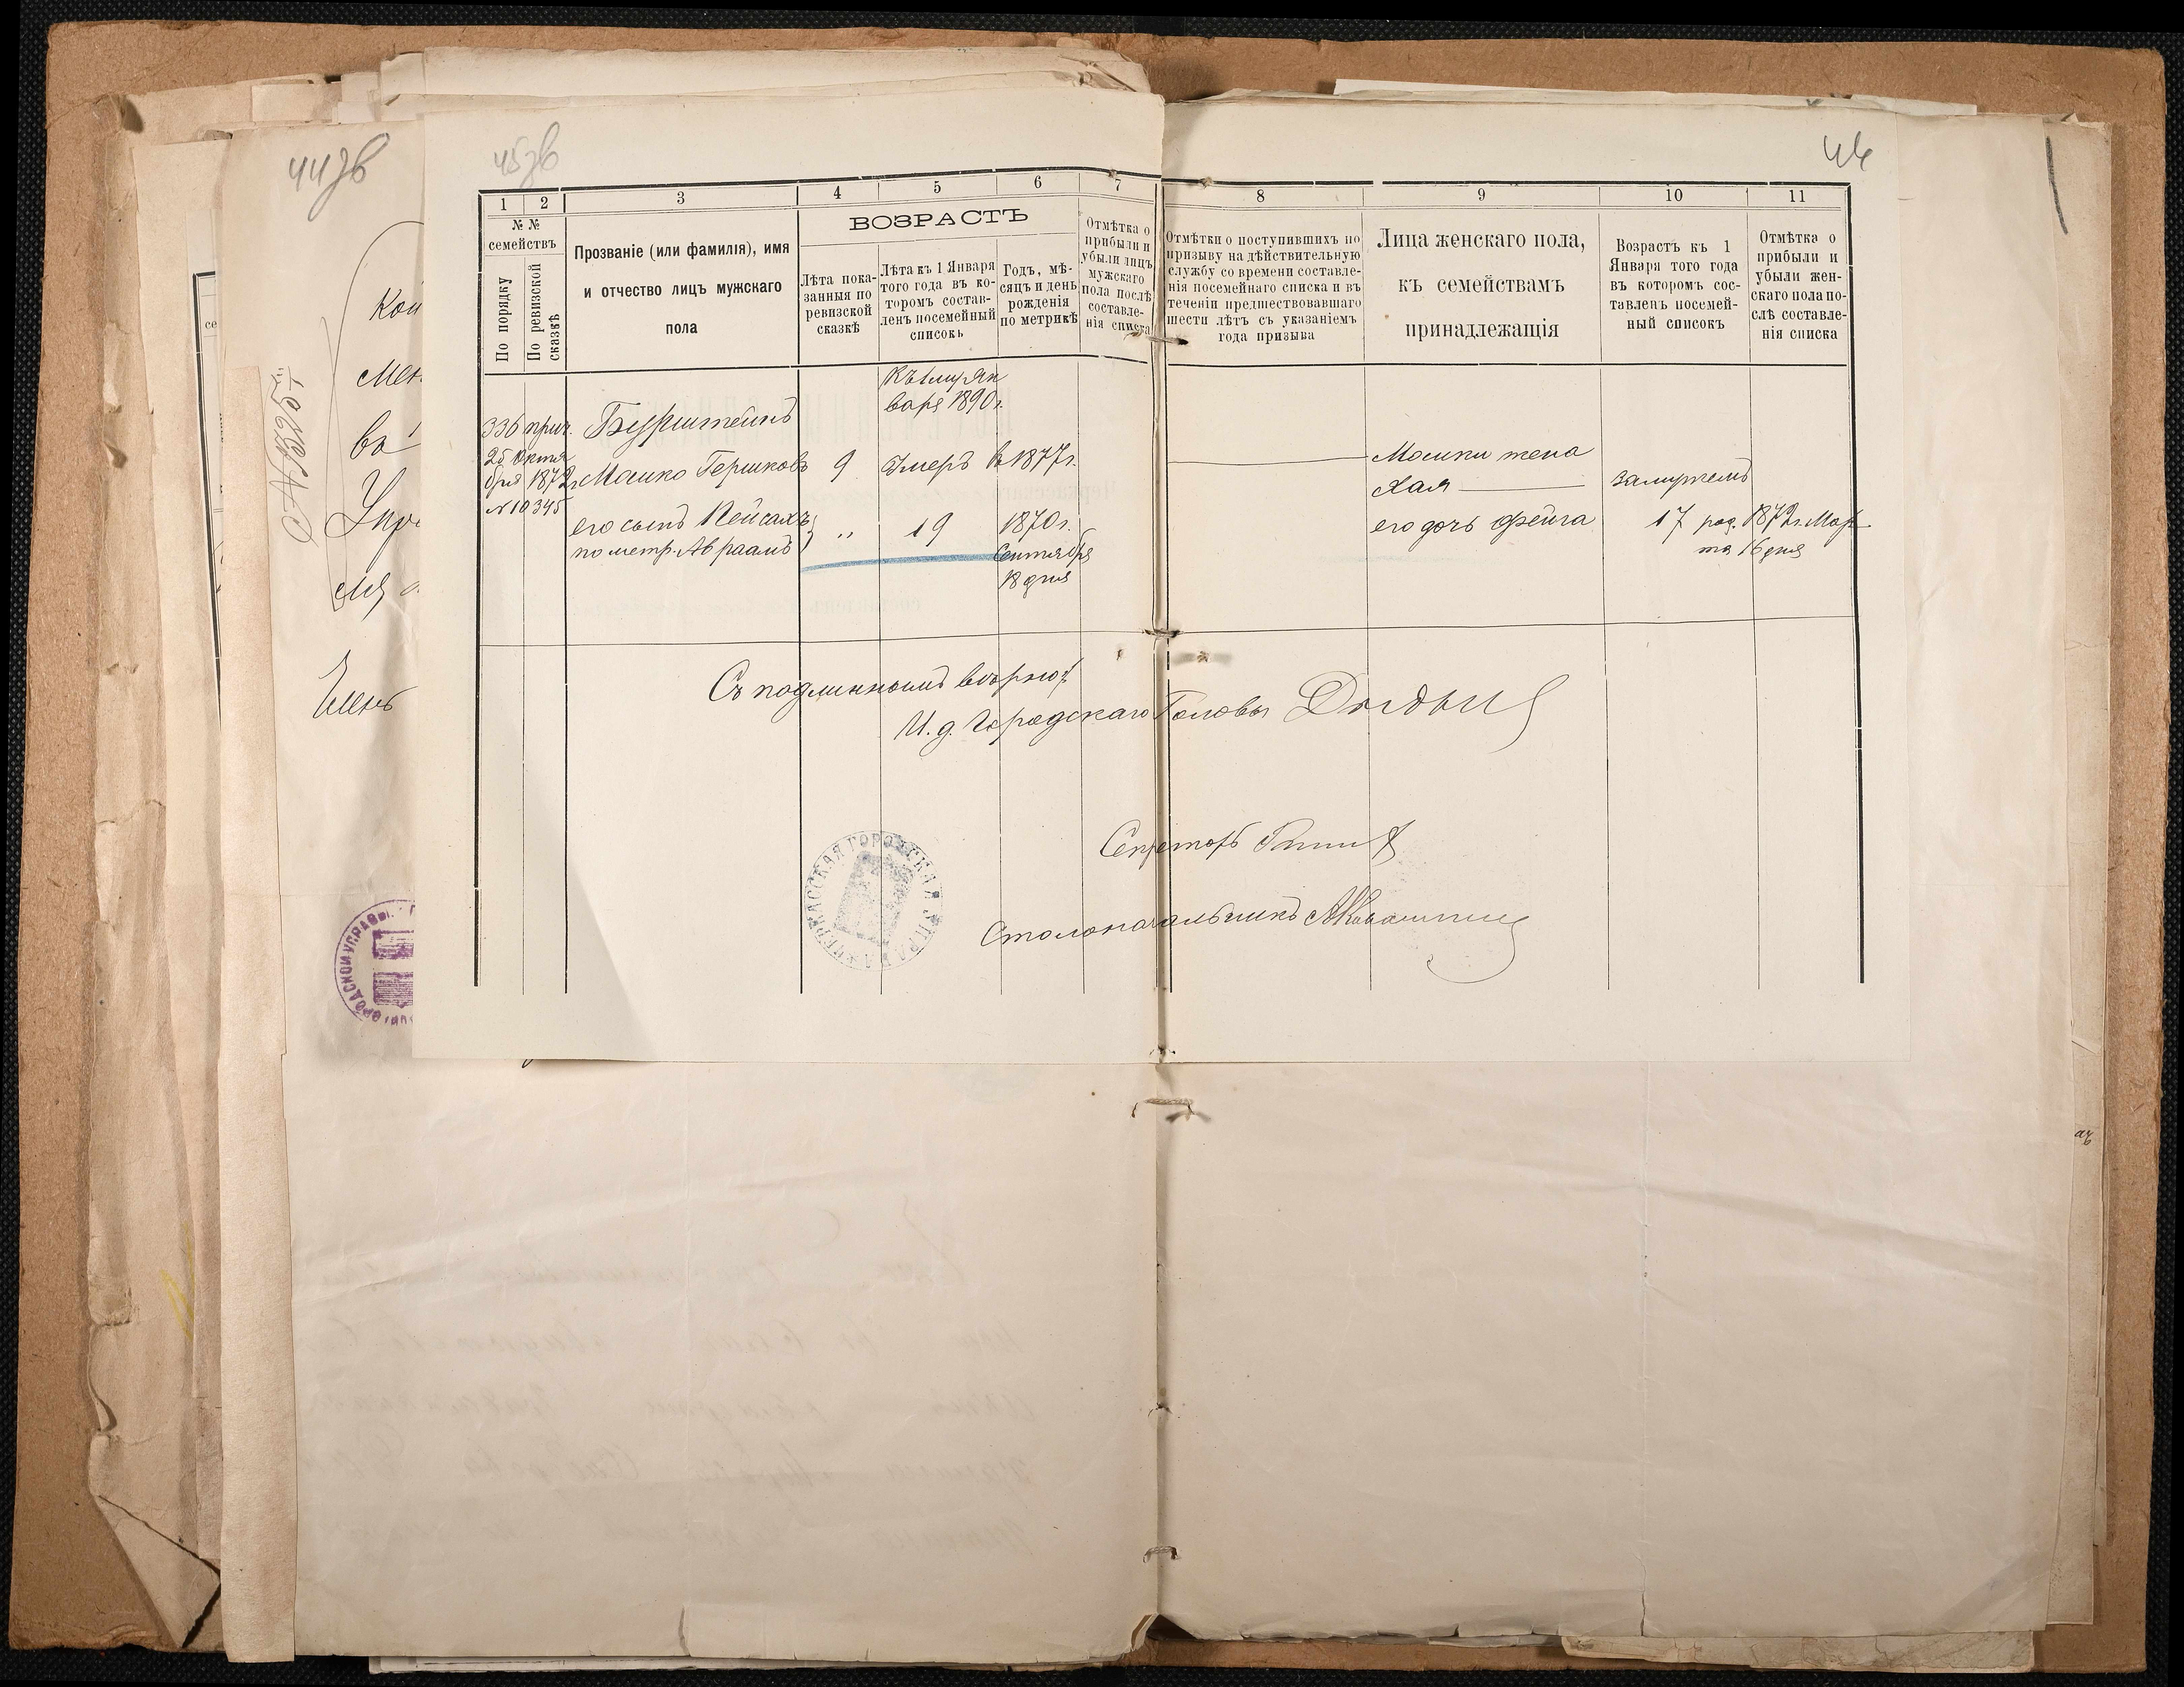 44зв
45зв
46
1
2
3
4
5
6
7
8
9
10
11
№ №
семействъ
По порядку
По ревизской сказкѣ
Прозваніе (или фамилія), имя
и отчество лицъ мужскаго
пола
ВОЗРАСТЪ
Лѣта пока-
занныя по
ревизской
сказкѣ
Лѣта къ 1 Января
того года въ ко-
торомъ состав-
ленъ посемейный
списокъ
Годъ, мѣ-
сяцъ и день
рожденія
по метрикѣ
Отмѣтка о
прибыли и
убыли лицъ
мужскаго
пола послѣ
составле-
нія списка
Отмѣтки о поступившихъ по
призыву на дѣйствительную
службу со времени составле-
нія посемейнаго списка и въ
теченіи предшествовавшаго
шести лѣтъ съ указаніемъ
года призыва
Лица женскаго пола,
къ семействамъ
принадлежащія
Возрастъ къ 1
Января того года
въ которомъ сос-
тавленъ посемей-
ный списокъ
Отмѣтка о
прибыли и
убыли жен-
скаго пола по-
слѣ составле-
нія списка
Къ 1му Ян
варя 1890 г.
336 прич.
25 Октя
бря 1872 г.
№ 10345
Бурштейнъ
Мошко Гершковъ 9 Умеръ въ 1877 г.
Мошки жена
Хая
замужемъ
его сынъ Пейсахъ
по метр. Авраамъ
„ 19 1870 г.
Сентября
18 дня
его дочь Фейга 17 род. 1872 г. Мар
та 16 дня
Съ подлиннымъ вѣрно:
И. д. Городскаго Головы
Секретарь
Столоначальникъ
ЧЕРКАССКАЯ ГОРОДСКАЯ УПРАВА
ГОРОДСКОЙ УПРАВЫ